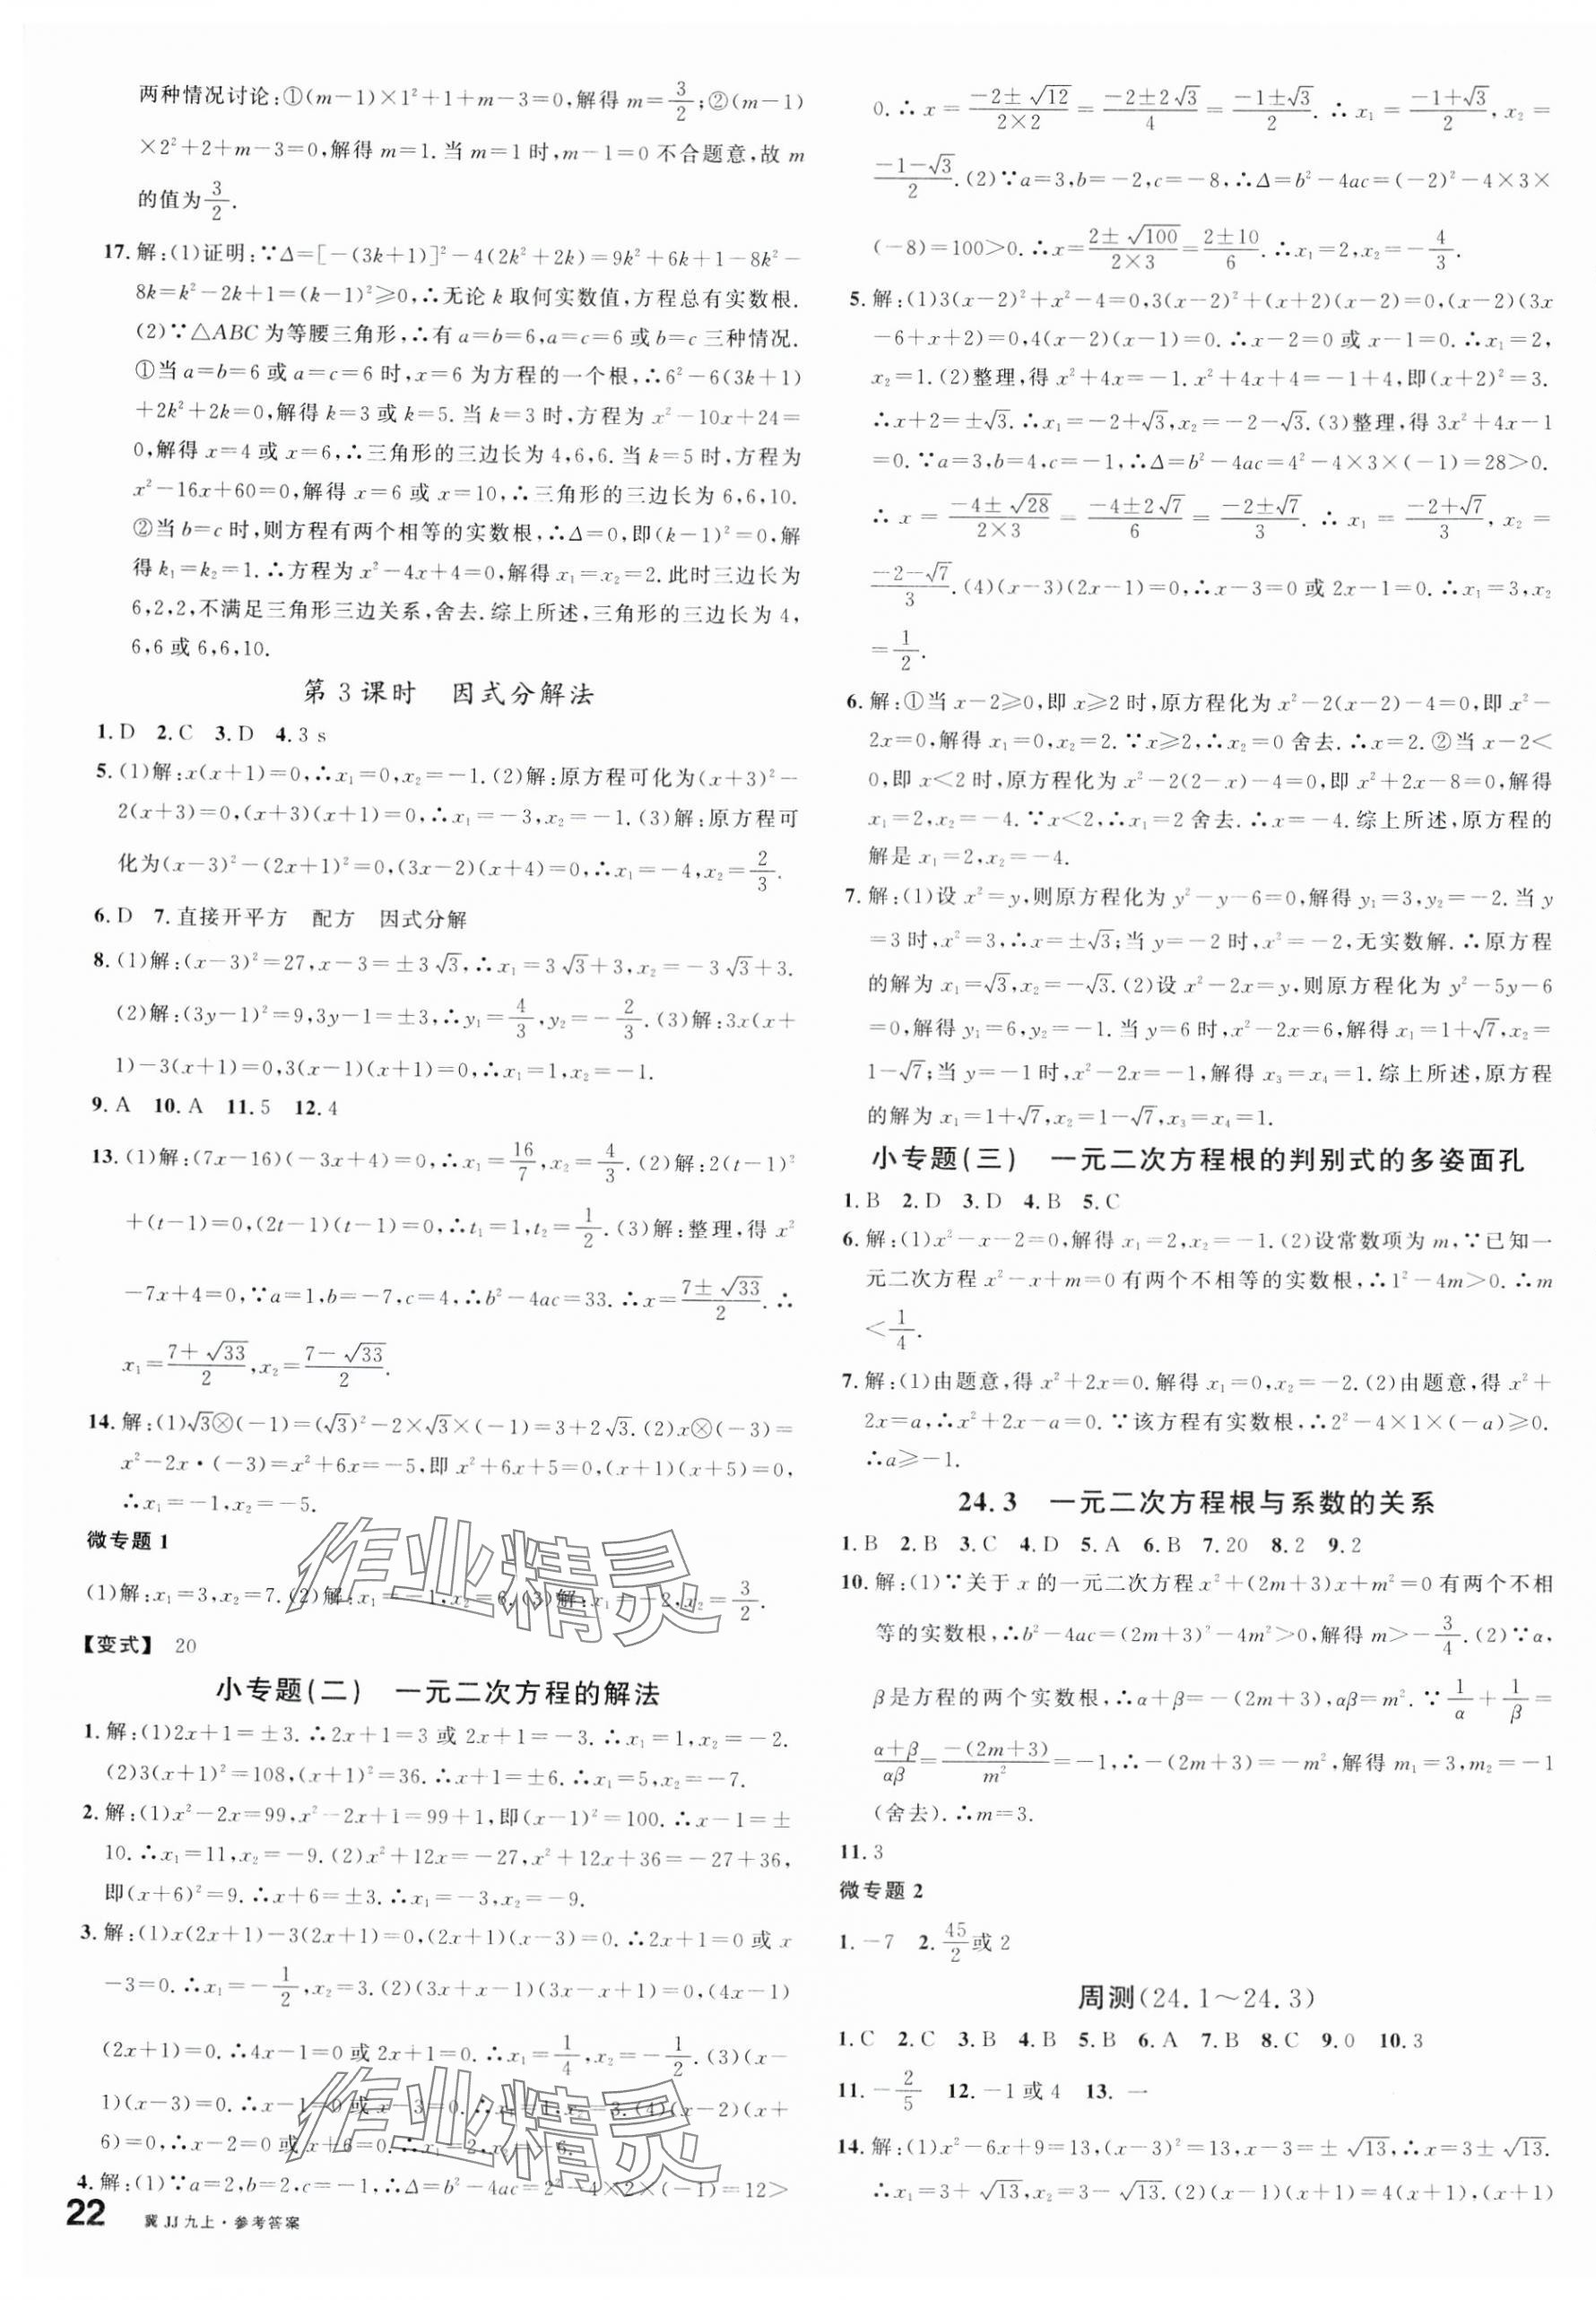 两种情况讨论:①(m-1)×1²+1+m-3=0,解得 m=3/2;②(m-1)
×2²+2+m-3=0,解得 m=1. 当 m=1 时,m-1=0 不合题意,故 m
的值为3/2.
17.解:(1)证明:∵Δ=[-(3k+1)]²-4(2k²+2k)=9k²+6k+1-8k²-
8k=k²-2k+1=(k-1)²≥0,∴无论 k 取何实数值,方程总有实数根.
(2)∵△ABC 为等腰三角形,∴有 a=b=6,a=c=6 或 b=c 三种情况.
①当 a=b=6 或 a=c=6 时,x=6 为方程的一个根,∴6²-6(3k+1)
+2k²+2k=0,解得 k=3 或 k=5. 当 k=3 时,方程为 x²-10x+24=
0,解得 x=4 或 x=6,∴三角形的三边长为 4,6,6. 当 k=5 时,方程为
x²-16x+60=0,解得 x=6 或 x=10,∴三角形的三边长为 6,6,10.
②当 b=c 时,则方程有两个相等的实数根,∴Δ=0,即(k-1)²=0,解
得 k₁=k₂=1. ∴方程为 x²-4x+4=0,解得 x₁=x₂=2. 此时三边长为
6,2,2,不满足三角形三边关系,舍去. 综上所述,三角形的三边长为 4,
6,6 或 6,6,10.
第 3 课时 因式分解法
1.D 2.C 3.D 4.3 s
5.(1)解:x(x+1)=0,∴x₁=0,x₂=-1. (2)解:原方程可化为(x+3)²-
2(x+3)=0,(x+3)(x+1)=0,∴x₁=-3,x₂=-1. (3)解:原方程可
化为(x-3)²-(2x+1)²=0,(3x-2)(x+4)=0,∴x₁=-4,x₂=2/3.
6.D 7.直接开平方 配方 因式分解
8.(1)解:(x-3)²=27,x-3=±3√3,∴x₁=3√3+3,x₂=-3√3+3.
(2)解:(3y-1)²=9,3y-1=±3,∴y₁=4/3,y₂=-2/3. (3)解:3x(x+
1)-3(x+1)=0,3(x-1)(x+1)=0,∴x₁=1,x₂=-1.
9.A 10.A 11.5 12.4
13.(1)解:(7x-16)(-3x+4)=0,∴x₁=16/7,x₂=4/3. (2)解:2(t-1)²
+(t-1)=0,(2t-1)(t-1)=0,∴t₁=1,t₂=1/2. (3)解:整理,得 x²
-7x+4=0,∵a=1,b=-7,c=4,∴b²-4ac=33. ∴x=(7±√33)/2. ∴
x₁=(7+√33)/2,x₂=(7-√33)/2.
14.解:(1)√3⊗(-1)=(√3)²-2×√3×(-1)=3+2√3. (2)x⊗(-3)=
x²-2x·(-3)=x²+6x=-5,即 x²+6x+5=0,(x+1)(x+5)=0,
∴x₁=-1,x₂=-5.
微专题 1
(1)解:x₁=3,x₂=7. (2)解:x₁=-1,x₂=6. (3)解:x₁=-2,x₂=3/2.
【变式】 20
小专题(二) 一元二次方程的解法
1.解:(1)2x+1=±3. ∴2x+1=3 或 2x+1=-3. ∴x₁=1,x₂=-2.
(2)3(x+1)²=108,(x+1)²=36. ∴x+1=±6. ∴x₁=5,x₂=-7.
2.解:(1)x²-2x=99,x²-2x+1=99+1,即(x-1)²=100. ∴x-1=±
10. ∴x₁=11,x₂=-9. (2)x²+12x=-27,x²+12x+36=-27+36,
即(x+6)²=9. ∴x+6=±3. ∴x₁=-3,x₂=-9.
3.解:(1)x(2x+1)-3(2x+1)=0,(2x+1)(x-3)=0. ∴2x+1=0 或 x
-3=0. ∴x₁=-1/2,x₂=3. (2)(3x+x-1)(3x-x+1)=0,(4x-1)
(2x+1)=0. ∴4x-1=0 或 2x+1=0. ∴x₁=1/4,x₂=-1/2. (3)(x-
1)(x-3)=0. ∴x-1=0 或 x-3=0. ∴x₁=1,x₂=3. (4)(x-2)(x+
6)=0,∴x-2=0 或 x+6=0. ∴x₁=2,x₂=-6.
4.解:(1)∵a=2,b=2,c=-1,∴Δ=b²-4ac=2²-4×2×(-1)=12>
0. ∴x=(-2±√12)/(2×2)=(-2±2√3)/4=(-1±√3)/2. ∴x₁=(-1+√3)/2,x₂=
(-1-√3)/2. (2)∵a=3,b=-2,c=-8,∴Δ=b²-4ac=(-2)²-4×3×
(-8)=100>0. ∴x=(2±√100)/(2×3)=(2±10)/6. ∴x₁=2,x₂=-4/3.
5.解:(1)3(x-2)²+x²-4=0,3(x-2)²+(x+2)(x-2)=0,(x-2)(3x
-6+x+2)=0,4(x-2)(x-1)=0. ∴x-2=0 或 x-1=0. ∴x₁=2,
x₂=1. (2)整理,得 x²+4x=-1. x²+4x+4=-1+4,即(x+2)²=3.
∴x+2=±√3. ∴x₁=-2+√3,x₂=-2-√3. (3)整理,得 3x²+4x-1
=0. ∵a=3,b=4,c=-1,∴Δ=b²-4ac=4²-4×3×(-1)=28>0.
∴x=(-4±√28)/(2×3)=(-4±2√7)/6=(-2±√7)/3. ∴x₁=(-2+√7)/3,x₂=
(-2-√7)/3. (4)(x-3)(2x-1)=0,∴x-3=0 或 2x-1=0. ∴x₁=3,x₂
=1/2.
6.解:①当 x-2≥0,即 x≥2 时,原方程化为 x²-2(x-2)-4=0,即 x²-
2x=0,解得 x₁=0,x₂=2. ∵x≥2,∴x₂=0 舍去. ∴x=2. ②当 x-2<
0,即 x<2 时,原方程化为 x²-2(2-x)-4=0,即 x²+2x-8=0,解得
x₁=2,x₂=-4. ∵x<2,∴x₁=2 舍去. ∴x=-4. 综上所述,原方程的
解是 x₁=2,x₂=-4.
7.解:(1)设 x²=y,则原方程化为 y²-y-6=0,解得 y₁=3,y₂=-2. 当 y
=3 时,x²=3,∴x=±√3;当 y=-2 时,x²=-2,无实数解. ∴原方程
的解为 x₁=√3,x₂=-√3. (2)设 x²-2x=y,则原方程化为 y²-5y-6
=0,解得 y₁=6,y₂=-1. 当 y=6 时,x²-2x=6,解得 x₁=1+√7,x₂=
1-√7;当 y=-1 时,x²-2x=-1,解得 x₃=x₄=1. 综上所述,原方程
的解为 x₁=1+√7,x₂=1-√7,x₃=x₄=1.
小专题(三) 一元二次方程根的判别式的多姿面孔
1.B 2.D 3.D 4.B 5.C
6.解:(1)x²-x-2=0,解得 x₁=2,x₂=-1. (2)设常数项为 m,∵已知一
元二次方程 x²-x+m=0 有两个不相等的实数根,∴1²-4m>0. ∴m
<1/4.
7.解:(1)由题意,得 x²+2x=0. 解得 x₁=0,x₂=-2. (2)由题意,得 x²+
2x=a,∴x²+2x-a=0. ∵该方程有实数根,∴2²-4×1×(-a)≥0.
∴a≥-1.
24.3 一元二次方程根与系数的关系
1.B 2.B 3.C 4.D 5.A 6.B 7.20 8.2 9.2
10.解:(1)∵关于 x 的一元二次方程 x²+(2m+3)x+m²=0 有两个不相
等的实数根,∴b²-4ac=(2m+3)²-4m²>0,解得 m>-3/4. (2)∵α,
β是方程的两个实数根,∴α+β=-(2m+3),αβ=m². ∵1/α+1/β=
(α+β)/αβ=-(2m+3)/m²=-1,∴-(2m+3)=-m²,解得 m₁=3,m₂=-1
(舍去). ∴m=3.
11.3
微专题 2
1.-7 2.45/2或 2
周测(24.1～24.3)
1.C 2.C 3.B 4.B 5.B 6.A 7.B 8.C 9.0 10.3
11.-2/5 12.-1 或 4 13.一
14.解:(1)x²-6x+9=13,(x-3)²=13,x-3=±√13,∴x=3±√13.
∴x₁=3+√13,x₂=3-√13. (2)(x-1)(x+1)=4(x+1),(x+1)
22 冀 JJ 九上·参考答案
作业精灵
作业精灵